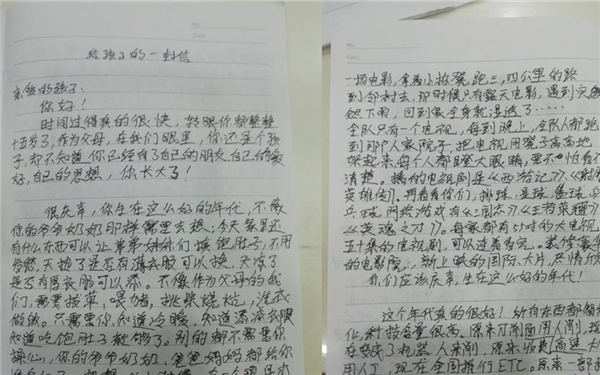 给孩子的一封信
亲爱的孩子:
你好!
时间过得真的很快,转眼你都整整
十五岁了,作为父母,在我们眼里,你还是个孩
子,却不知道你已经有了自己的朋友,自己的爱
好,自己的思想,你长大了!
很庆幸,你生在这么好的年代,不像
你的爷爷奶奶那样需要去想,今天家里还
有什么东西可以让弟弟妹妹们填饱肚子,不用
发愁,天热了是否有薄衣服可以换,天冷了
是否有厚衣服可以添。不像作为父母的我
们,需要拔草、喂猪、挑柴烧火、洗衣
做饭。只需要你知道冷暖,知道添减衣服
知道吃饱肚子就够了。别的都不需要你
操心,你的爷爷奶奶、爸爸妈妈都给你
一场电影,拿着小板凳,跑三、四公里的路
到邻村去,那时候只有露天电影,遇到突然
然下雨,回到家全身就湿透了……
全队只有一个电视,每到晚上,全队人都跑
到那户人家院子,把电视用凳子高高地
架起来,每个人都目瞪大眼睛,要不怕看不
清楚。播的电视剧是《西游记》《射雕
英雄传》。再看看你们,排球、足球、篮球、乒
乓球,网络游戏有《三国杀》《王者荣耀》
《英魂之刃》。每家都有50吋的大电视,
五十集的电视剧,可以连着看完。装修豪华
的电影院,新上映的国际大片,尽情欣
你们应该庆幸,生在这么好的年代!
这个年代真的很好!所有东西都简
化,科技含量很高。原来刀削面用人削,现
在变成了机器人来削。原来收费高速大
用人工,现在全国推行ETC。原来一部